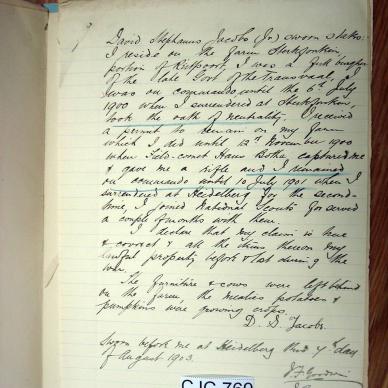 David Stephanus Jacobs (Jr) sworn states:
I reside on the farm Sterkfontein,
portion of Rietpoort I was a full burgher
of the late Govt of the Transvaal. I
was on commando until the 6th July
1900 when I surrendered at Sterkfontein,
took the oath of neutrality. I received
a permit to remain on my farm
which I did until 12th November 1900
when Feld-cornet Hans Botha captured me
& gave me a rifle and I remained
on commando until 10 July 1901 when I
surrendered at Heidelberg for the second
time, I joined National Scouts & served
a couple of months with them.
I declare that my claim is true
& correct & all the items thereon my
lawful property before & lost during the
war.
The furniture & cows were left behind
on the farm, the mealies potatoes &
pumpkins were growing crops.
D. S. Jacobs.
Sworn before me at Heidelberg this 7th day
of August 1903.
CJC 769